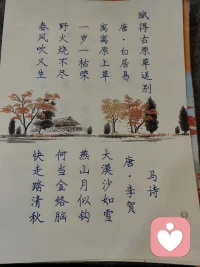 赋得古原草送别
唐·白居易
离离原上草
一岁一枯荣
野火烧不尽
春风吹又生
马诗
唐·李贺
大漠沙如雪
燕山月似钩
何当金络脑
快走踏清秋